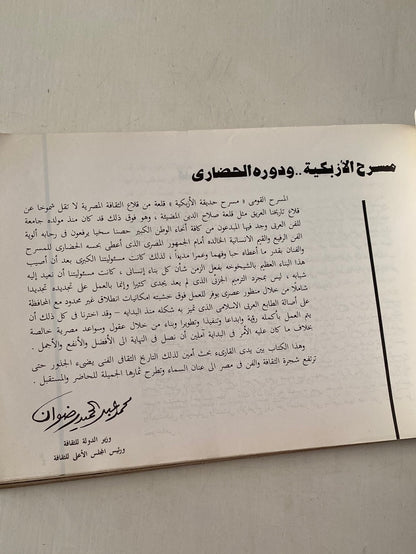 مسرح الأزبكية .. ودوره الحضارى
المسرح القومى « مسرح حديقة الأزبكية » قلعة من قلاع الثقافة المصرية لا تقل شموخا عن
قلاع تاريخنا العريق مثل قلعة صلاح الدين المضيئة ، وهو فوق ذلك قد كان منذ مولده جامعة
للفن العربى وجد فيها المبدعون من كافة أنحاء الوطن الكبير حضنا سخيا يرفعون فى رحابه ألوية
الفن الرفيع والقيم الانسانية الخالده أمام الجمهور المصرى الذى أعطى بحسه الحضارى للمسرح
والفنان بقدر ما أعطاه حبا وفهما وعمرا مديدا ، لذلك كانت مسئوليتنا الكبرى بعد أن أصيب
هذا البناء العظيم بالشيخوخه بفعل الزمن شأن كل بناء إنسانى ، كانت مسئوليتنا أن نعيد إليه
شبابه ، ليس بمجرد الترميم الجزئى الذى لم يعد يجدى كثيرا وإنما بالعمل على تجديده تجديدا
شاملا من خلال منظور عصرى يوفر للعمل فوق خشبته امكانيات انطلاق غير محدود مع المحافظة
على أصالة الطابع العربى الاسلامى الذى تميز به شكله منذ البداية - وقد اخترنا فى كل ذلك أن
يتم العمل بأكمله رؤية وإبداعا وتنفيذا وتطويرا وبناء من خلال عقول وسواعد مصرية خالصة
بخلاف ما كان عليه الأمر فى البداية آملين أن نصل فى النهاية الى الأفضل والأنفع والأجمل .
وهذا الكتاب بين يدى القارىء بحث أمين لذلك التاريخ الثقافى الفنى يضىء الجذور حتى
ترتفع شجرة الثقافة والفن فى مصر الى عنان السماء وتطرح ثمارها الجميلة للحاضر والمستقبل .
محمد عبد الحميد رضوان
وزير الدولة للثقافة
ورئيس المجلس الأعلى للثقافة